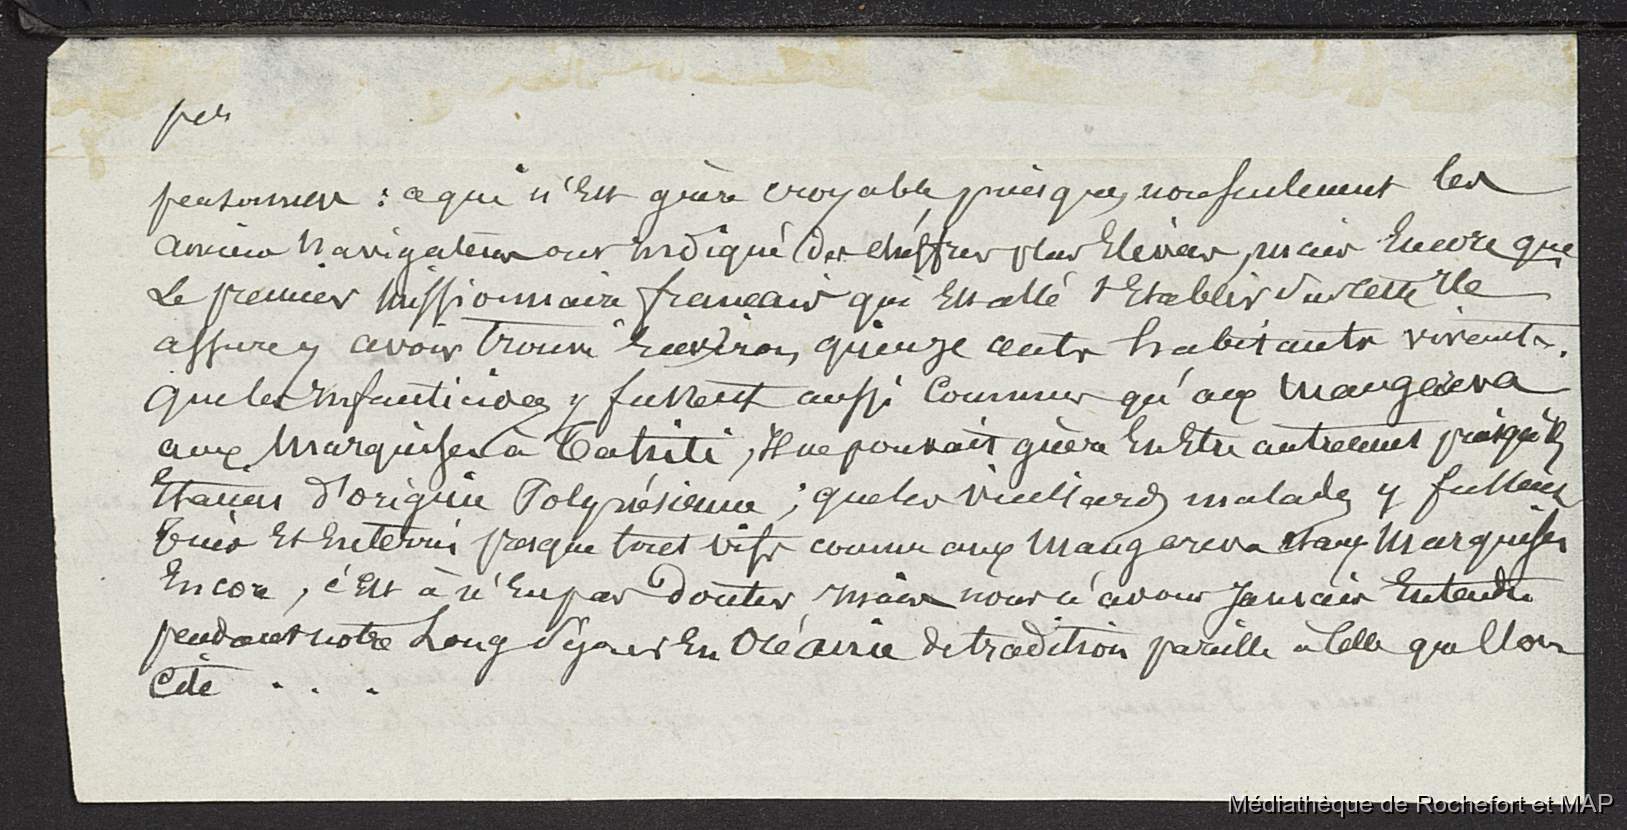 per
personnes : ce qui n'est guère croyable puisque, non seulement les
anciens navigateurs ont indiqué des chiffres plus élevés, mais encore que
le premier missionnaire français qui est allé s'établir sur cette île
assure y avoir trouvé environ quinze cents habitants vivants.
que les infanticides y fussent aussi communs qu'aux Mangareva
aux Marquises à Tahiti, il ne pouvait guère en être autrement puisqu'ils
étaient d'origine Polynésienne ; que les vieillards malades y fussent
tués et enterrés presque tout vifs comme aux Mangareva et aux Marquises
encore, c'est à n'en pas douter mais nous n'avons jamais entendu
pendant notre long séjour en Océanie de tradition pareille à celle que l'on
cite . . .
Médiathèque de Rochefort et MAP